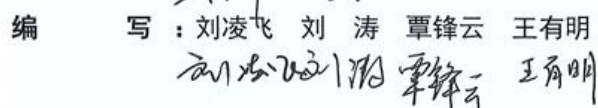 编 写 : 刘凌飞 刘 涛 覃锋云 王有明
刘凌飞 刘涛 覃锋云 王有明